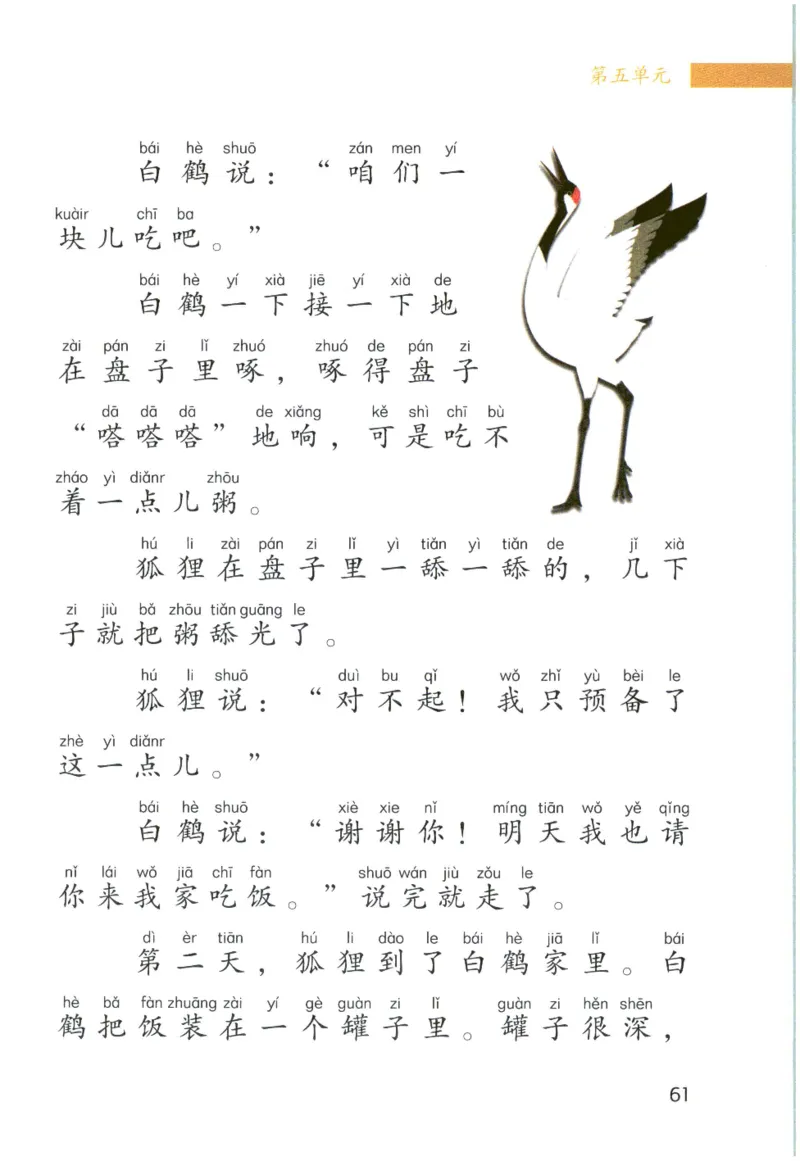 第五单元
bái hè shuō zán men yí
白鹤说：“咱们一
kuàir chī ba
块儿吃吧。”
bái hè yí xià jiē yí xià de
白鹤一下接一下地
zài pán zi lǐ zhuó zhuó de pán zi
在盘子里啄，啄得盘子
dā dā dā de xiǎng kě shì chī bù
“嗒嗒嗒”地响，可是吃不
zháo yì diǎnr zhōu
着一点儿粥。
hú li zài pán zi lǐ yì tiǎn yì tiǎn de jǐ xià
狐狸在盘子里一舔一舔的，几下
zi jiù bǎ zhōu tiǎn guāng le
子就把粥舔光了。
hú li shuō duì bu qǐ wǒ zhǐ yù bèi le
狐狸说：“对不起！我只预备了
zhè yì diǎnr
这一点儿。”
bái hè shuō xiè xie nǐ míng tiān wǒ yě qǐng
白鹤说：“谢谢你！明天我也请
nǐ lái wǒ jiā chī fàn shuō wán jiù zǒu le
你来我家吃饭。”说完就走了。
dì èr tiān hú li dào le bái hè jiā lǐ bái
第二天，狐狸到了白鹤家里。白
hè bǎ fàn zhuāng zài yí gè guàn zi lǐ guàn zi hěn shēn
鹤把饭装在一个罐子里。罐子很深，
61